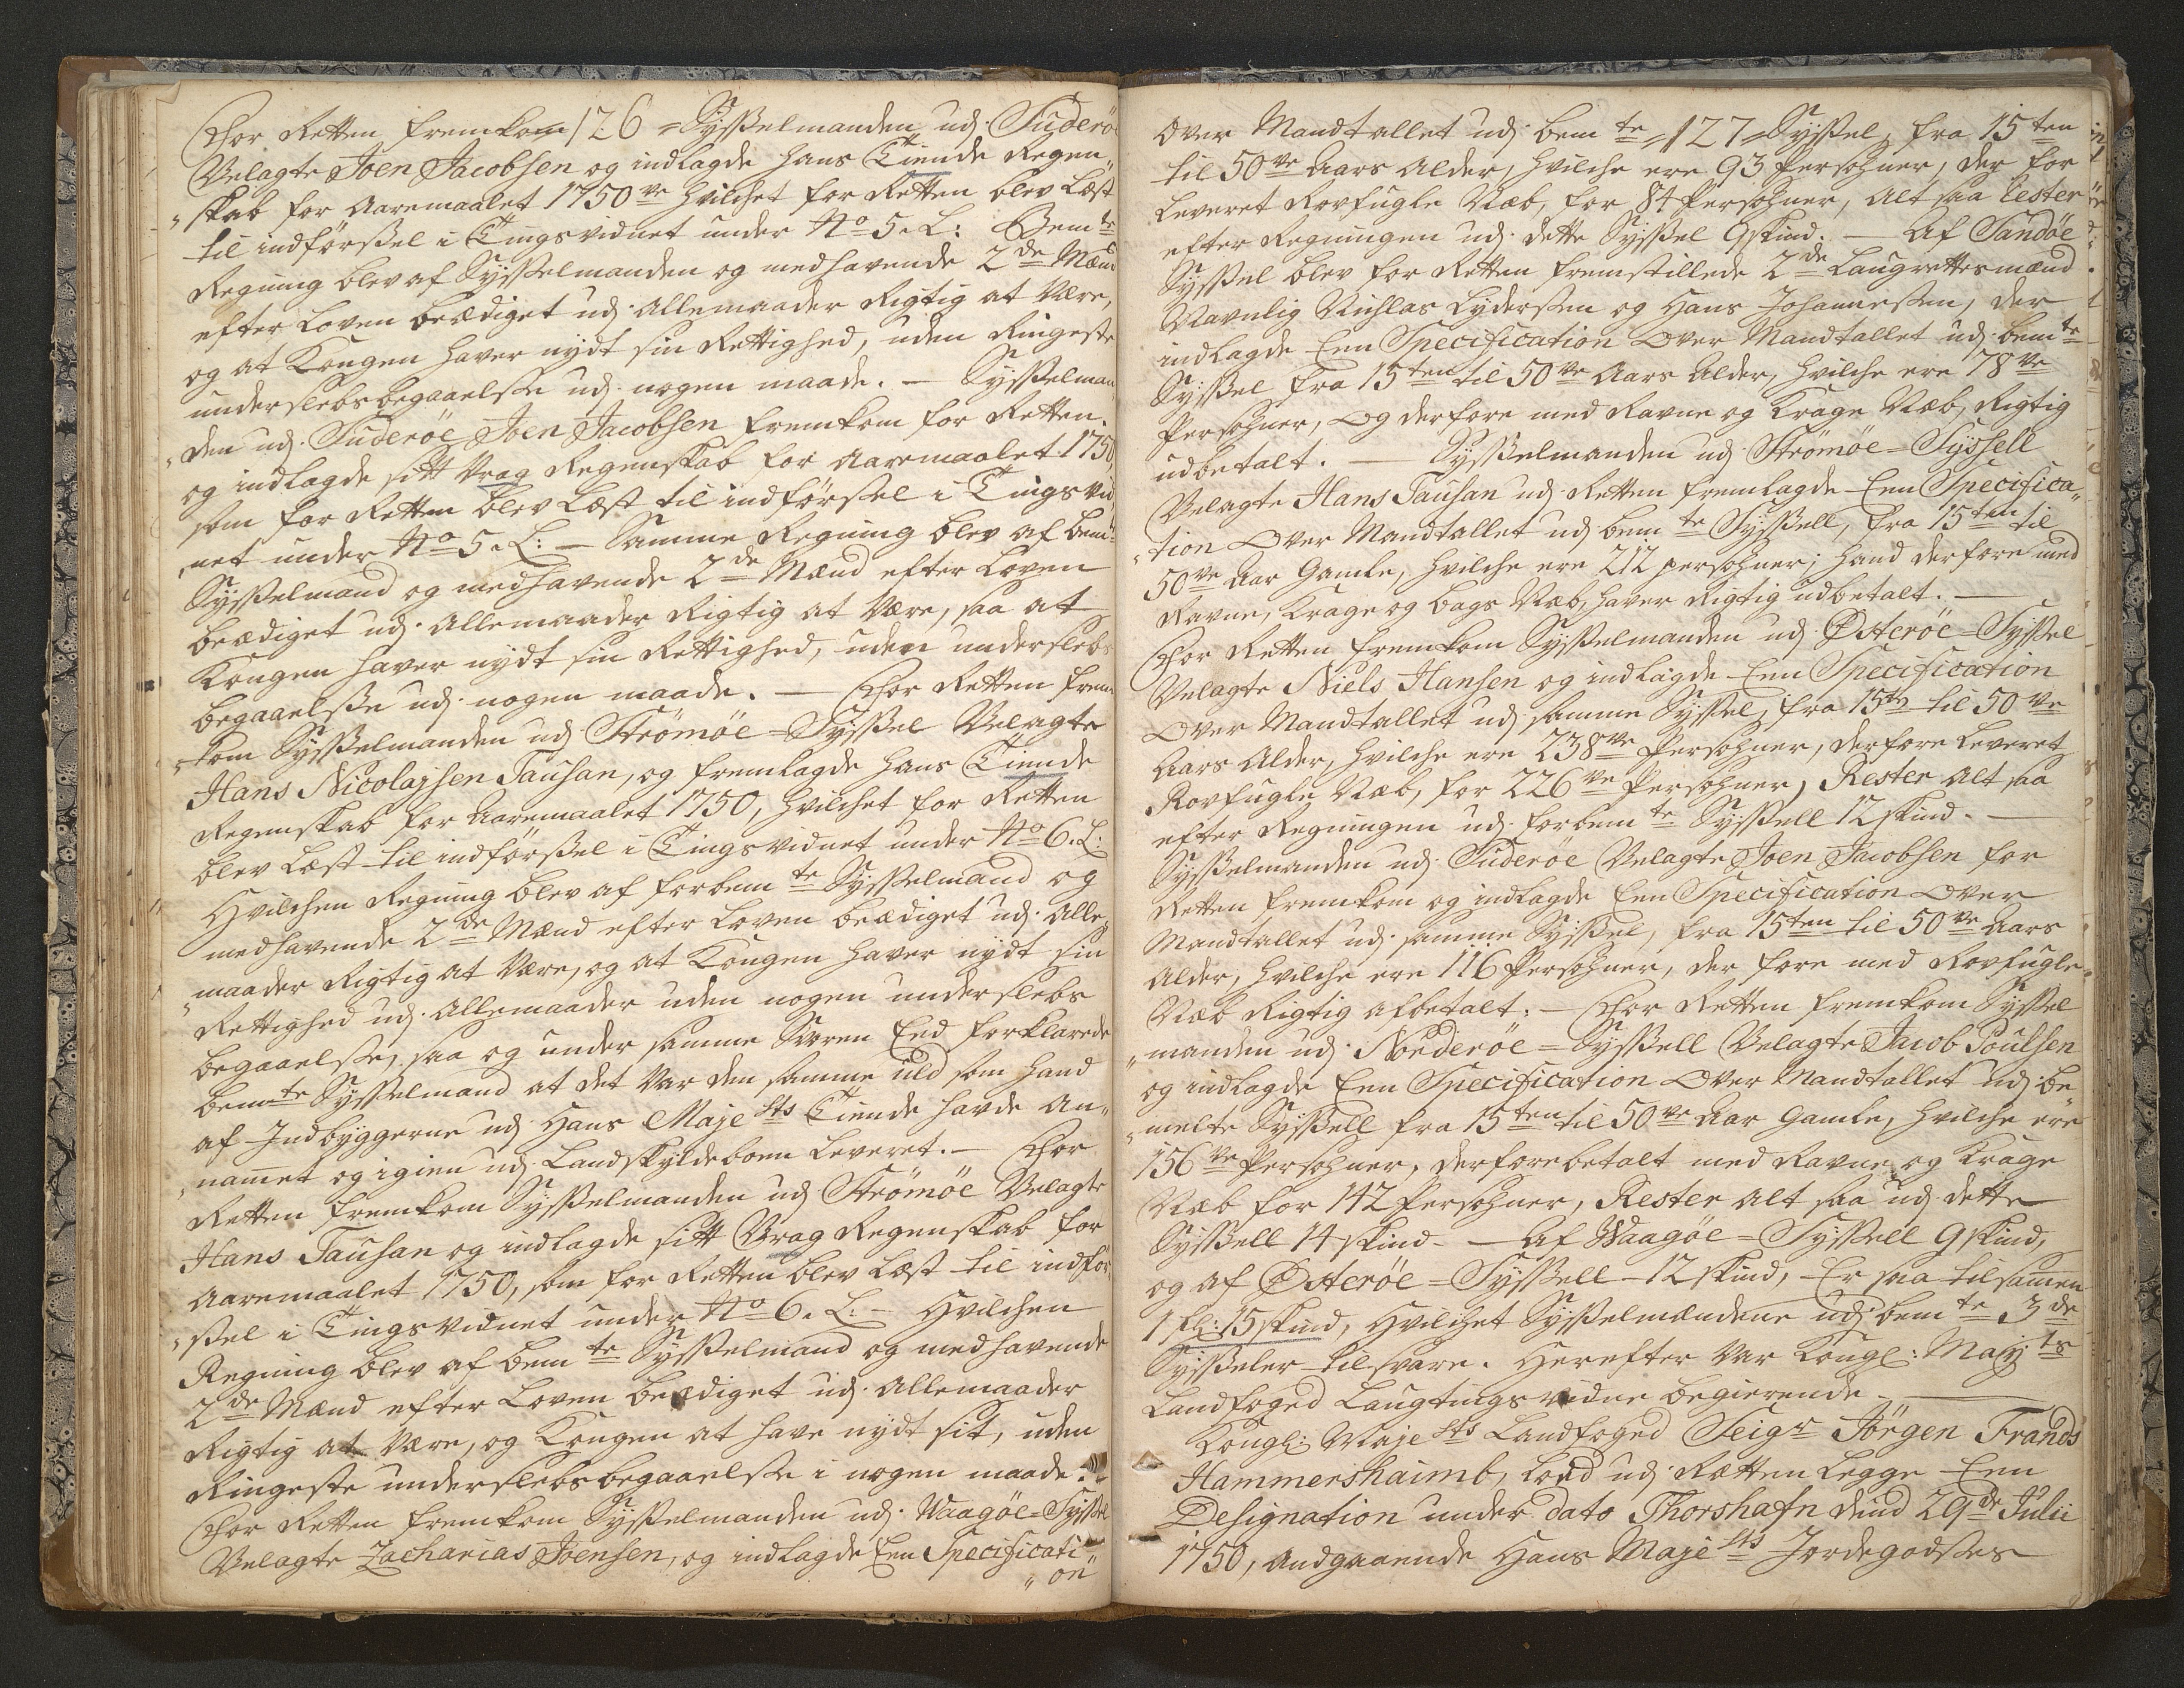 126
For Retten fremkom Sysselmanden udj Suderöe
Velagte Joen Jacobsen og indlagde hans Tiende Regen„
„skab for Aaremaalet 1750ve hvilchet for Retten blev Læst
til indførsel i Tingsvidnet under No 5. L: Bemte
Regning blev af Sysselmanden og medhavende 2de Mænd
efter Loven beædiget udj Allemaader Rigtig at Være,
og at Kongen haver nydt sin Rettighed, uden Ringeste
underslebs begaaelse udj nogen maade. — Sysselman„
„den udj Suderöe Joen Jacobsen fremkom for Retten
og indlagde sitt Vrag Regenskab for Aaremaalet 1750,
som for Retten blev Læst til indførsel i Tingsvid„
„net under No 5. L: — Samme Regning blev af bemte
Sysselmand og medhavende 2de Mænd efter Loven
beædiget udj Allemaader Rigtig at Være, saa at
Kongen haver nydt sin Rettighed, uden underslebs
begaaelse udj nogen maade. — For Retten frem„
„kom Sysselmanden udj Strömöe-Syssel Velagte
Hans Nicolajsen Tausan, og fremlagde hans Tiende
Regenskab for Aaremaalet 1750, hvilchet for Retten
blev Læst til indførsel i Tingsvidnet under No 6. L:
Hvilchen Regning blev af forbemte Sysselmand og
medhavende 2de Mænd efter Loven beædiget udj Alle„
„maader Rigtig at Være, og at Kongen haver nydt sin
Rettighed udj Allemaader uden nogen underslebs
begaaelse, saa og under samme Soren Eed forklarede
bemte Sysselmand at det Var den samme uld som hand
af Indbyggerne udj Hans Majesttts Tiende havde An„
„namet og igien udj Landskyldeboen Leveret. — For
Retten fremkom Sysselmanden udj Strömöe Velagte
Hans Tausan og indlagde sitt Vrag Regenskab for
Aaremaalet 1750, som for Retten blev Læst til indfør„
„sel i Tingsvidnet under No 6. L: — Hvilchen
Regning blev af bemte Sysselmand og medhavende
2de Mænd efter Loven beædiget udj Allemaader
Rigtig at Være, og Kongen at have nydt sit, uden
Ringeste underslebs begaaelse i nogen maade.
For Retten fremkom Sysselmanden udj Waagöe-Syssel
Velagte Zacharias Joensen, og indlagde Een Specificati„
„on
127
Over Mandtallet udj bemte Syssel, fra 15ten
til 50ve Aars Alder, hvilche ere 93 Persohner, der for
Leveret Rovfugle Næb, for 84 Persohner, Alt saa Rester
efter Regningen udj dette Syssel 9 skind. — Af Sandöe
Syssel blev for Retten fremstillede 2de Laugrettesmænd
Navnlig Nichlas Lydersen og Hans Johannesen, der
indlagde Een Specification Over Mandtallet udj bemte
Syssel fra 15ten til 50ve Aars Alder, hvilche ere 78ve
Persohner, Og derfore med Ravne og Krage Næb, Rigtig
udbetalt. — Sysselmanden udj Strömöe-Syssell
Velagte Hans Tausan udj Retten fremlagde Een Specifica„
„tion Over Mandtallet udj bemte Syssell, fra 15ten til
50ve Aar Gamle, hvilche ere 212 persohner; hand derfore med
Ravne, Krage og bags Næb, haver Rigtig udbetalt. —
For Retten fremkom Sysselmanden udj Østeröe-Syssel
Velagte Niels Hansen og indlagde Een Specification
Over Mandtallet udj samme Syssel, fra 15ten til 50ve
Aars Alder, hvilche ere 238ve Persohner, derfore Leveret
Rovfugle Næb, for 226ve Persohner, Rester Alt saa
efter Regningen udj forbemte Syssell 12 skind. —
Sysselmanden udj Suderöe Velagte Joen Jacobsen for
Retten fremkom og indlagde Een Specification Over
Mandtallet udj samme Syssel, fra 15ten til 50ve Aars
Alder, hvilche ere 116 Persohner, der fore med Rovfugle„
Næb Rigtig afbetalt: — For Retten fremkom Syssel
„manden udj Norderöe-Syssell Velagte Jacob Poulsen
og indlagde Een Specification Over Mandtallet udj be„
„melte Syssell fra 15ten til 50ve Aar Gamle, hvilche ere
156ve Persohner, derfore betalt med Ravne og Krage
Næb for 142 Persohner, Rester Alt saa udj dette
Syssell 14 skind. — Af Waagöe-Syssell 9 skind,
og af Østeröe-Syssell 12 skind, Er saa tilsamen
1 Gl: 15 skind, Hvilchet Sysselmændene udj bemte 3de
Sysseler tilsvare. Herefter Var Kongl: Majts
Landfoged Laugtingsvidne begierende. —
Kongl: Majests Landfoged Seigr Jörgen Frands
Hammershaimb, Loed udj Retten Legge Een
Designation under dato Thorshafn deind 29de Julii
1750, Andgaaende Hans Majests Jordegodses